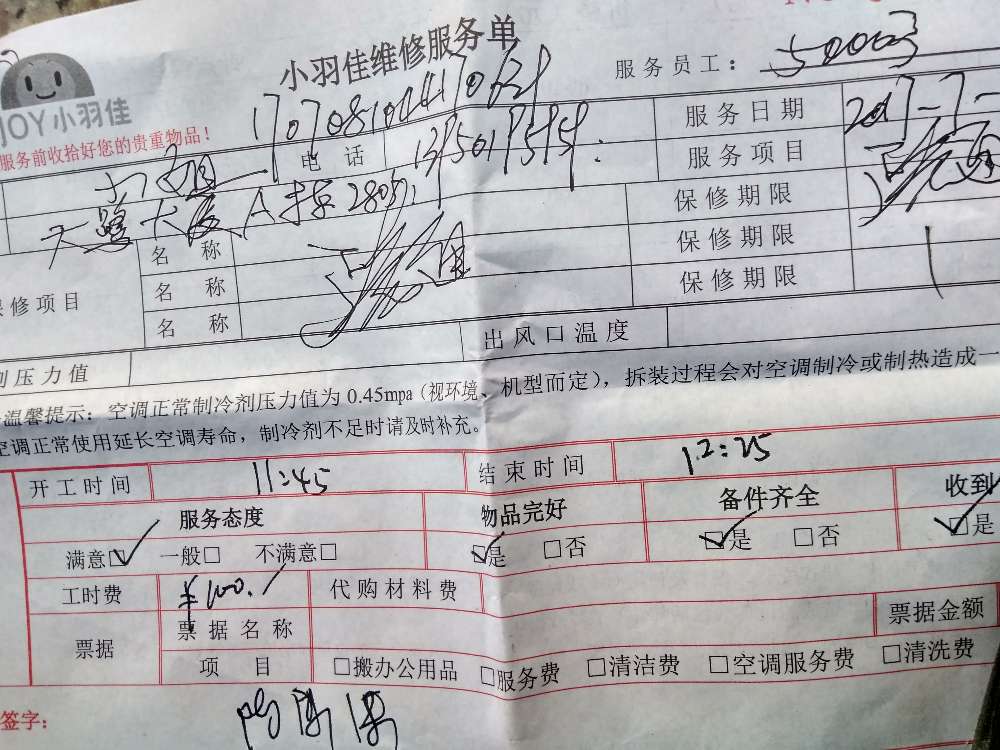 小羽佳维修服务单
服务员工：
JOY小羽佳
服务前收拾好您的贵重物品！
电 话
服务日期 2017-7-
服务项目
A 280
保修期限
名 称
保修期限
名 称
保修期限
修项目
名 称
压力值
出风口温度
温馨提示：空调正常制冷剂压力值为 0.45mpa（视环境、机型而定），拆装过程会对空调制冷或制热造成一
空调正常使用延长空调寿命，制冷剂不足时请及时补充。
开工时间 11:45 结束时间 12:25
服务态度 物品完好 备件齐全 收到
满意☑ 一般□ 不满意□ ☑是 □否 ☑是 □否 ☑是
工时费 ¥100. 代购材料费
票据 票据名称 票据金额
项 目 □搬办公用品 □服务费 □清洁费 □空调服务费 □清洗费
签字：